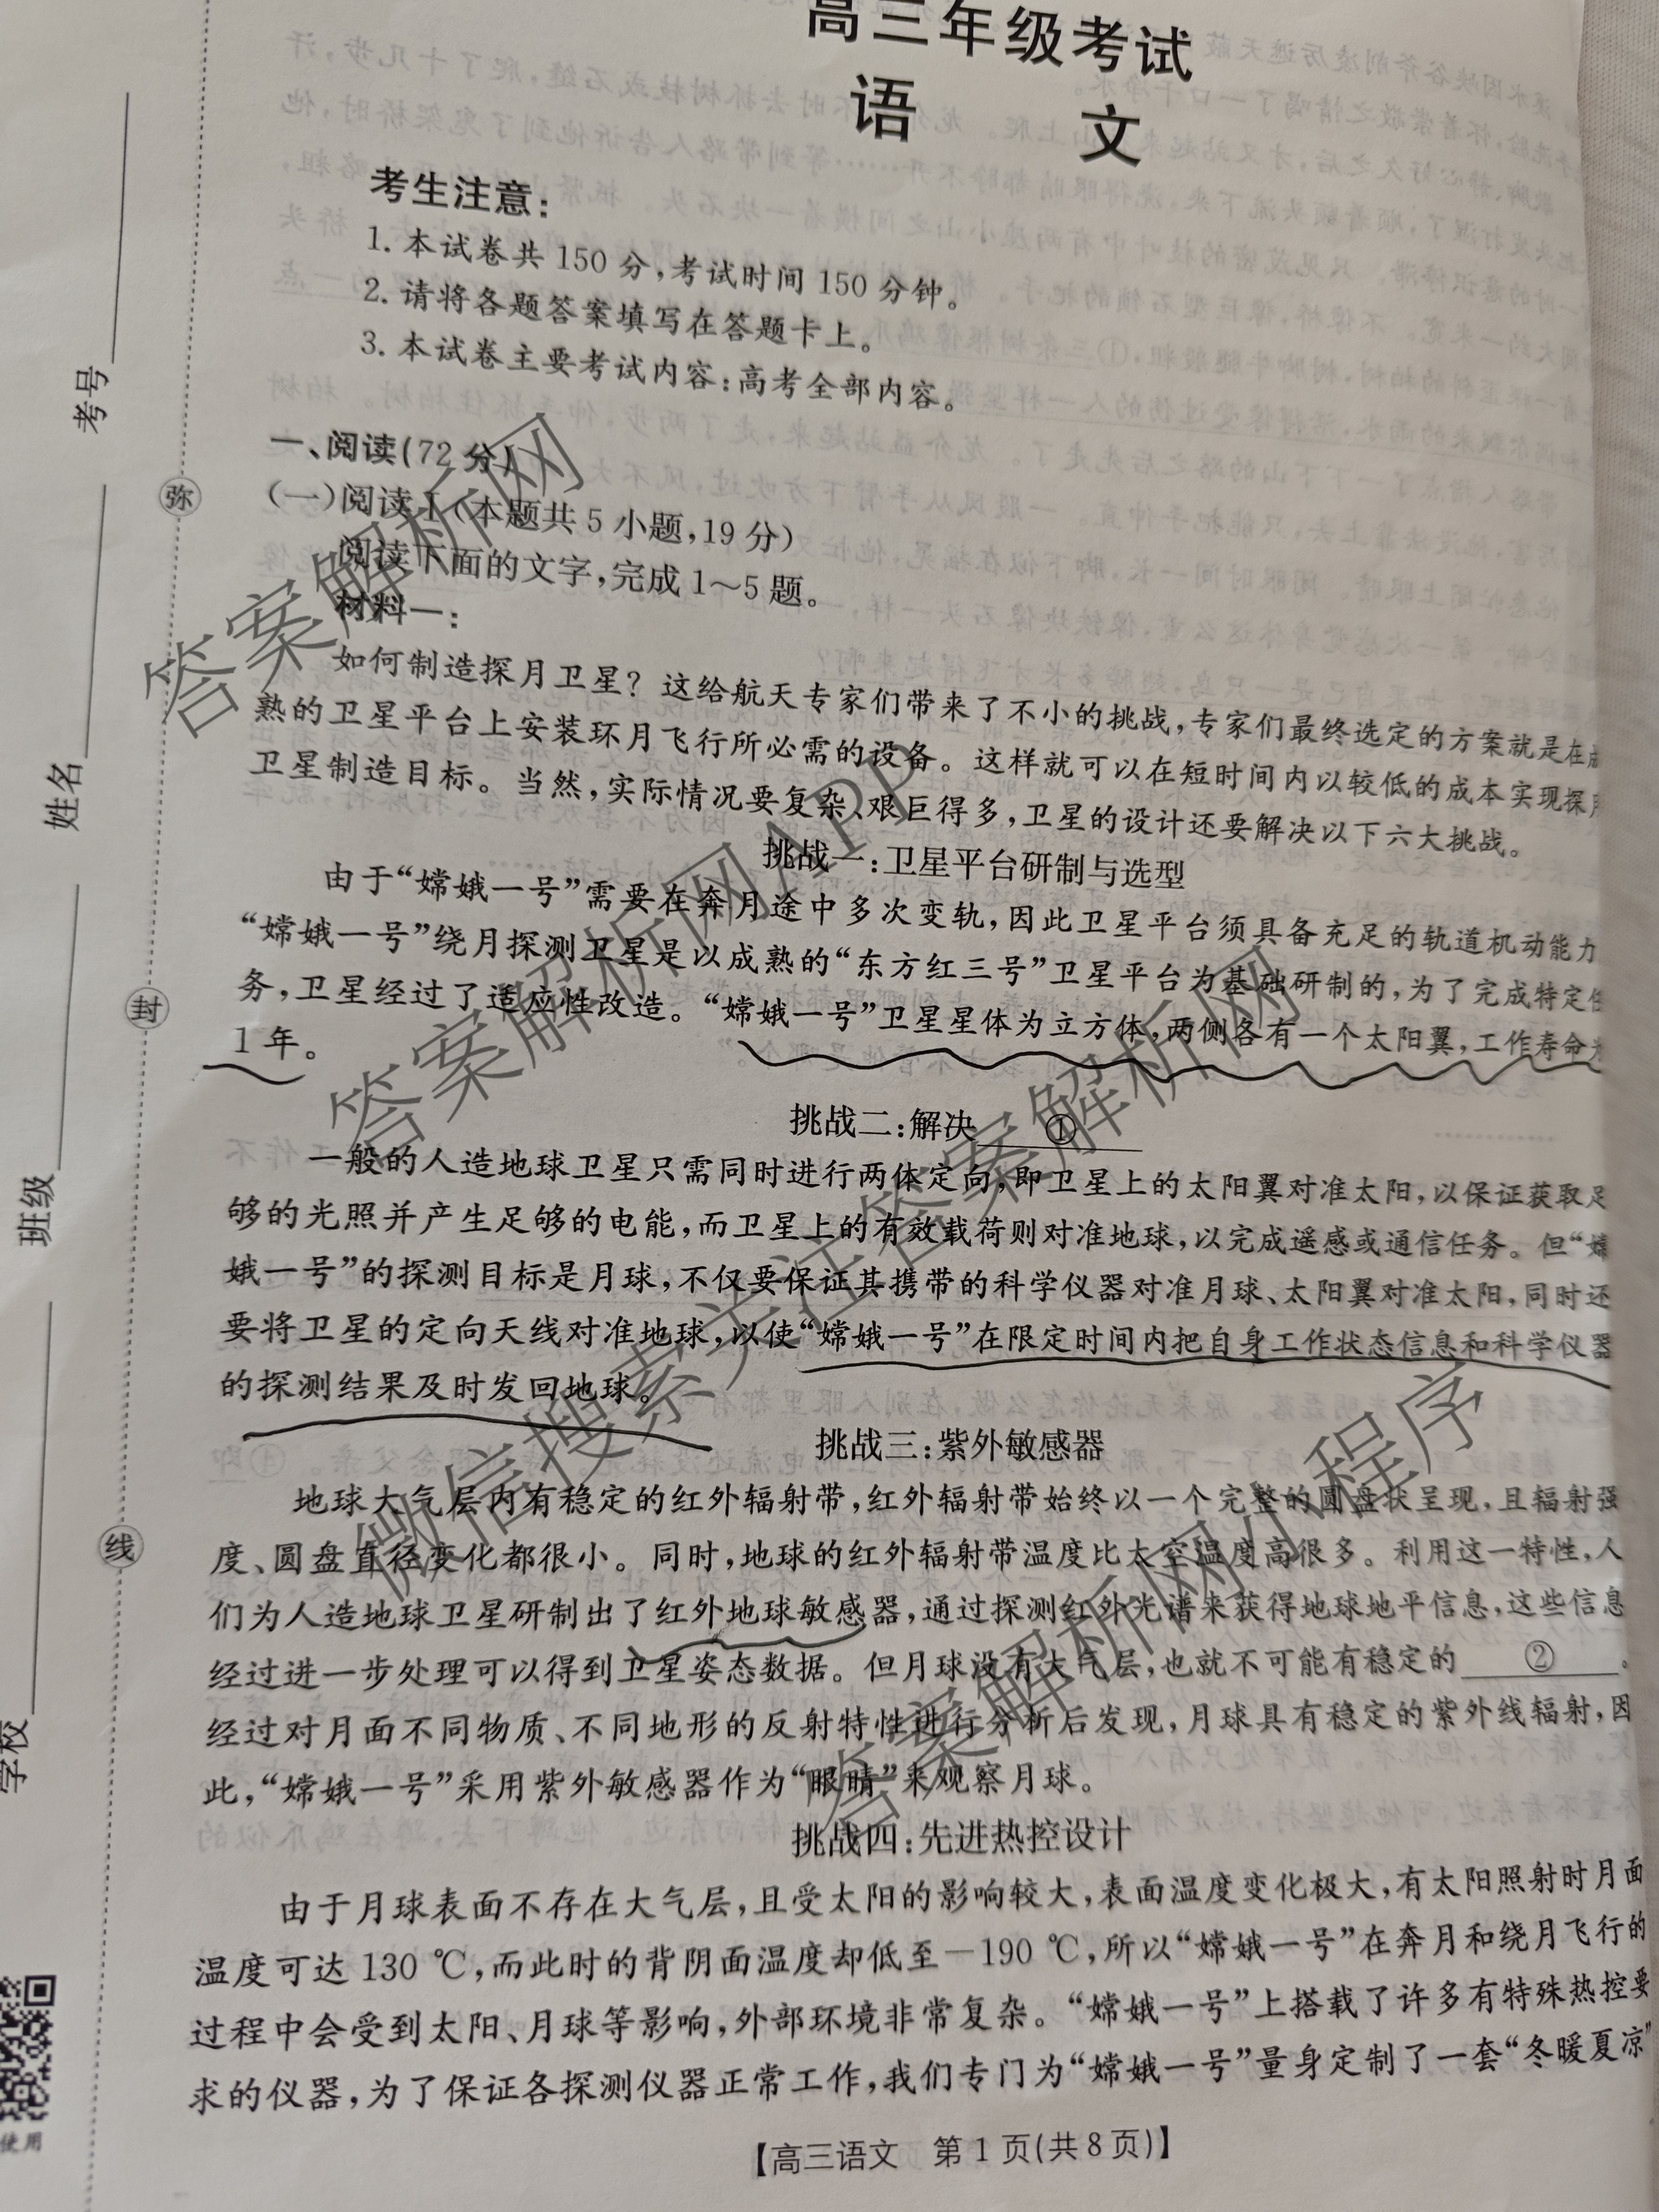 高三年级考试
语 文
考生注意:
1. 本试卷共 150 分,考试时间 150 分钟。
2. 请将各题答案填写在答题卡上。
3. 本试卷主要考试内容:高考全部内容。
一、阅读(72 分)
(一)阅读 I (本题共 5 小题,19 分)
阅读下面的文字,完成 1～5 题。
材料一:
如何制造探月卫星? 这给航天专家们带来了不小的挑战,专家们最终选定的方案就是在成
熟的卫星平台上安装环月飞行所必需的设备。这样就可以在短时间内以较低的成本实现探月
卫星制造目标。当然,实际情况要复杂、艰巨得多,卫星的设计还要解决以下六大挑战。
挑战一:卫星平台研制与选型
由于“嫦娥一号”需要在奔月途中多次变轨,因此卫星平台须具备充足的轨道机动能力
“嫦娥一号”绕月探测卫星是以成熟的“东方红三号”卫星平台为基础研制的,为了完成特定任
务,卫星经过了适应性改造。“嫦娥一号”卫星星体为立方体,两侧各有一个太阳翼,工作寿命为
1 年。
挑战二:解决 ①
一般的人造地球卫星只需同时进行两体定向,即卫星上的太阳翼对准太阳,以保证获取足
够的光照并产生足够的电能,而卫星上的有效载荷则对准地球,以完成遥感或通信任务。但“嫦
娥一号”的探测目标是月球,不仅要保证其携带的科学仪器对准月球、太阳翼对准太阳,同时还
要将卫星的定向天线对准地球,以使“嫦娥一号”在限定时间内把自身工作状态信息和科学仪器
的探测结果及时发回地球。
挑战三:紫外敏感器
地球大气层内有稳定的红外辐射带,红外辐射带始终以一个完整的圆盘状呈现,且辐射强
度、圆盘直径变化都很小。同时,地球的红外辐射带温度比太空温度高很多。利用这一特性,人
们为人造地球卫星研制出了红外地球敏感器,通过探测红外光谱来获得地球地平信息,这些信息
经过进一步处理可以得到卫星姿态数据。但月球没有大气层,也就不可能有稳定的 ② 。
经过对月面不同物质、不同地形的反射特性进行分析后发现,月球具有稳定的紫外线辐射,因
此,“嫦娥一号”采用紫外敏感器作为“眼睛”来观察月球。
挑战四:先进热控设计
由于月球表面不存在大气层,且受太阳的影响较大,表面温度变化极大,有太阳照射时月面
温度可达 130 ℃,而此时的背阴面温度却低至－190 ℃,所以“嫦娥一号”在奔月和绕月飞行的
过程中会受到太阳、月球等影响,外部环境非常复杂。“嫦娥一号”上搭载了许多有特殊热控要
求的仪器,为了保证各探测仪器正常工作,我们专门为“嫦娥一号”量身定制了一套“冬暖夏凉”
【高三语文 第 1 页(共 8 页)】
考号
姓名
班级
学校
弥
封
线
使用
答案解析网
答案解析网APP
微信搜索关注答案解析网
答案解析网小程序